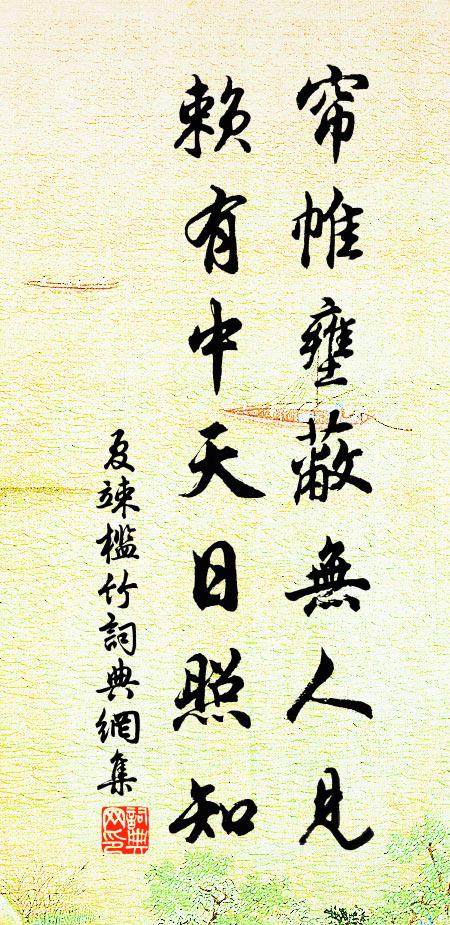 帘帷壅蔽無人見
賴有中天日照知
夏竦檻竹詞典網集
詞典網印